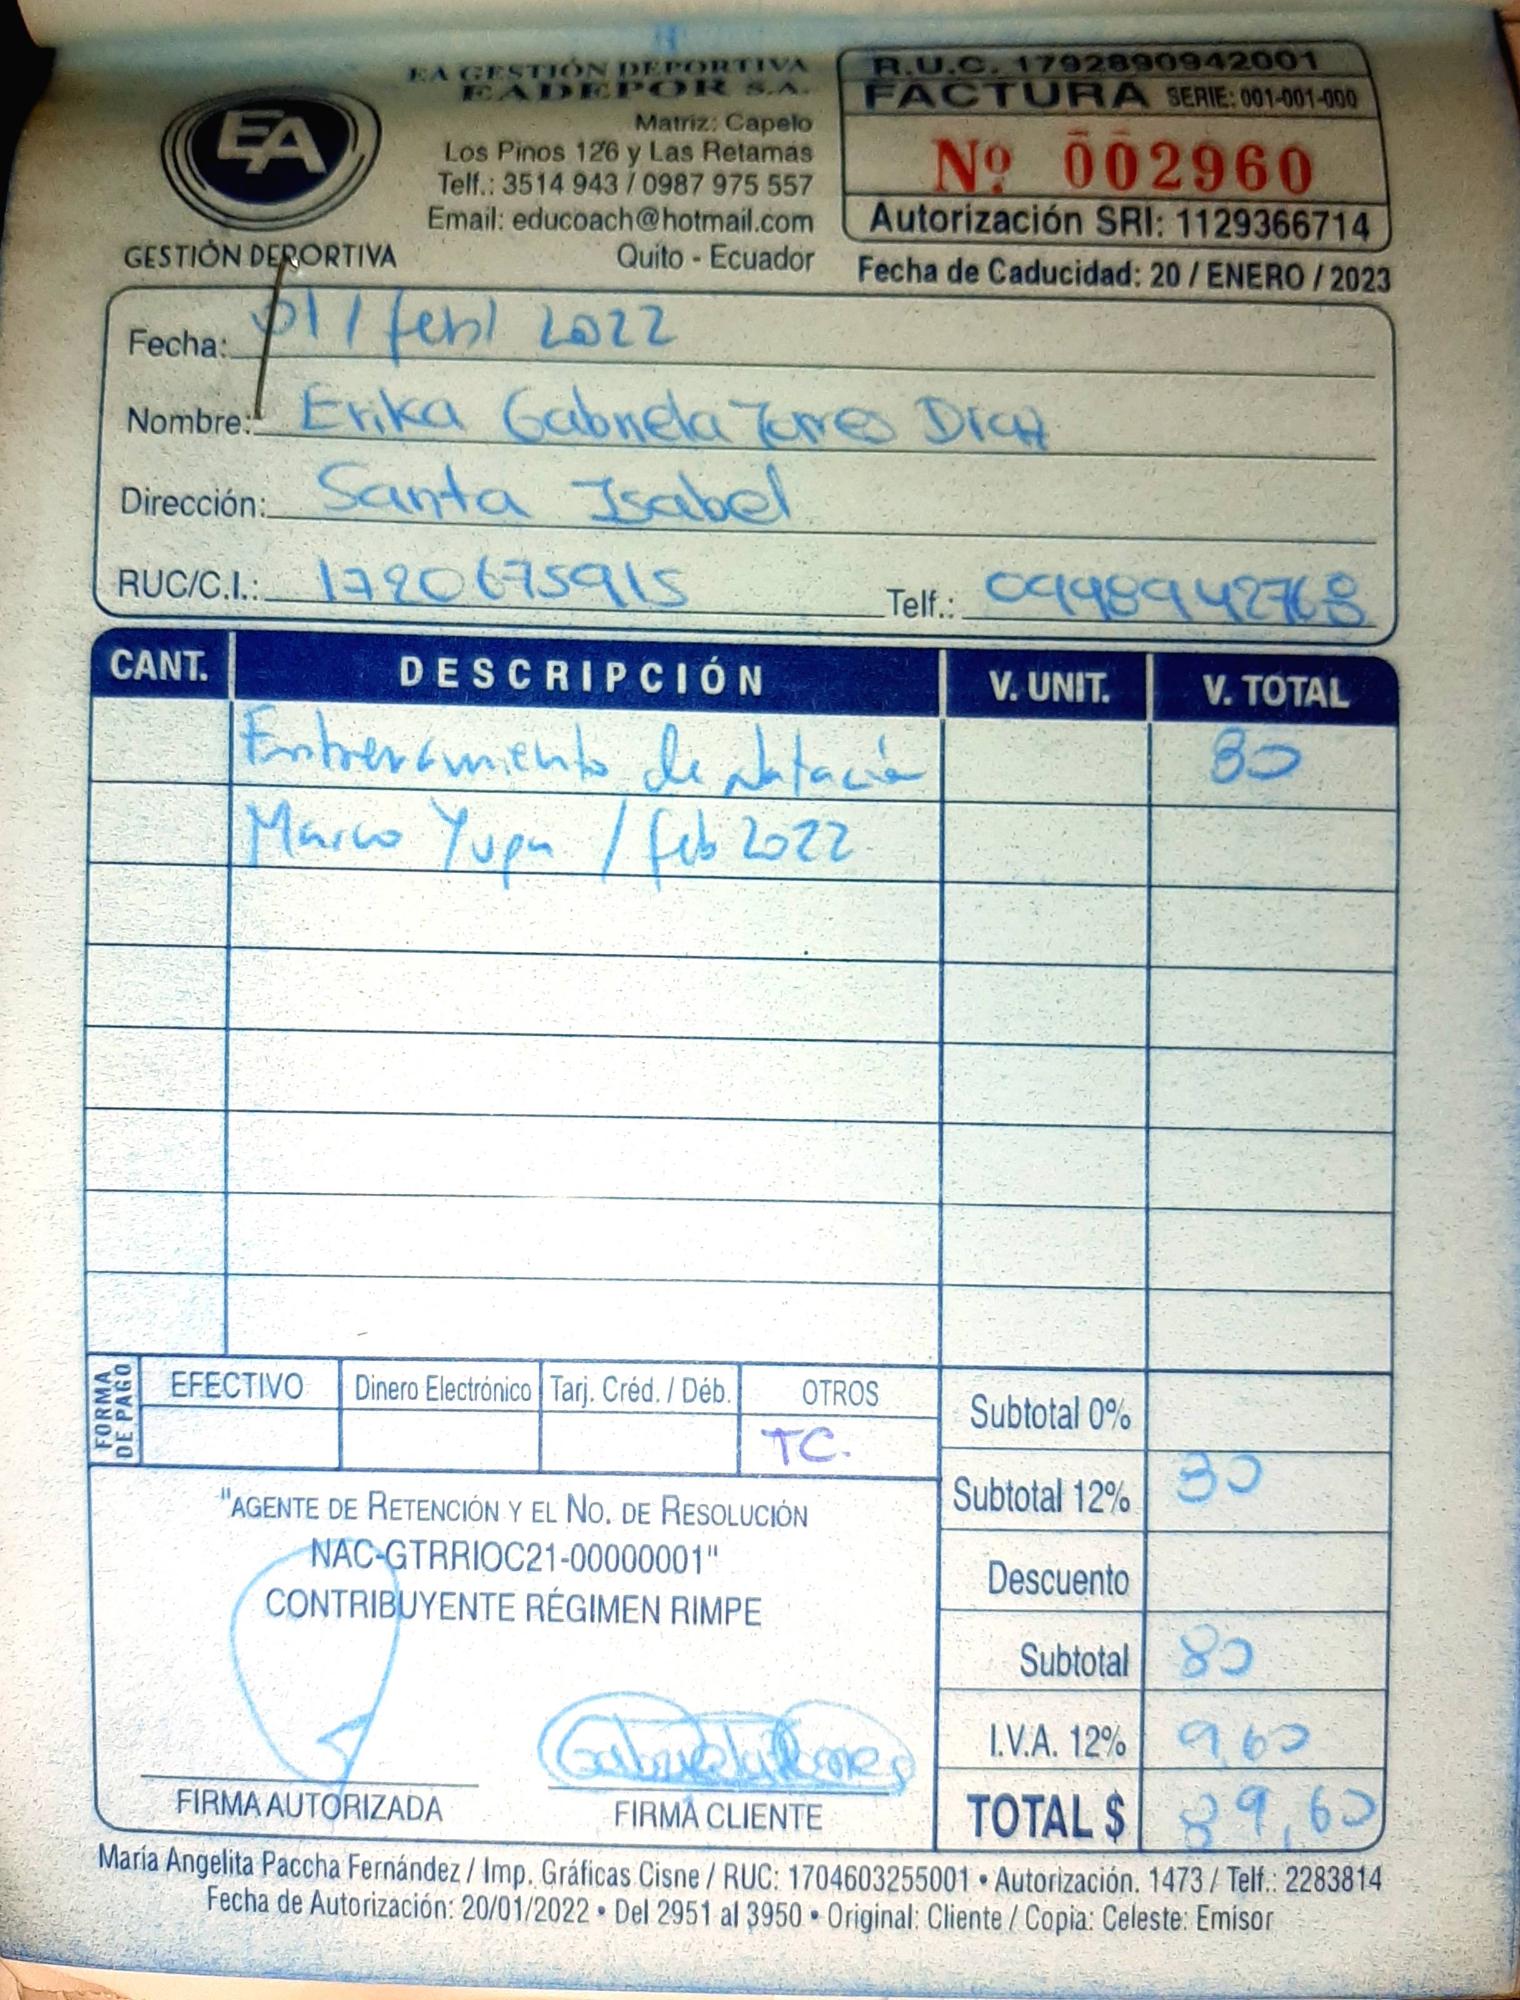 EA GESTIÓN DEPORTIVA
EADEPOR S.A.
Matriz: Capelo
Los Pinos 126 y Las Retamas
Telf.: 3514 943 / 0987 975 557
Email: educoach@hotmail.com
Quito - Ecuador
EA
GESTIÓN DEPORTIVA
R.U.C. 1792890942001
FACTURA SERIE: 001-001-000
Nº 002960
Autorización SRI: 1129366714
Fecha de Caducidad: 20 / ENERO / 2023
Fecha: 01 / feb / 2022
Nombre: Erika Gabriela Torres Diaz
Dirección: Santa Isabel
RUC/C.I.: 1720675915 Telf.: 0998942768
CANT. DESCRIPCIÓN V. UNIT. V. TOTAL
Entrenamiento de Natación 80
Marco Yupa / feb 2022
FORMA DE PAGO
EFECTIVO Dinero Electrónico Tarj. Créd. / Déb. OTROS
TC.
Subtotal 0%
Subtotal 12% 80
Descuento
Subtotal 80
I.V.A. 12% 9,60
TOTAL $ 89,60
"AGENTE DE RETENCIÓN Y EL NO. DE RESOLUCIÓN
NAC-GTRRIOC21-00000001"
CONTRIBUYENTE RÉGIMEN RIMPE
Gabriela Torres
FIRMA AUTORIZADA FIRMA CLIENTE
María Angelita Paccha Fernández / Imp. Gráficas Cisne / RUC: 1704603255001 • Autorización. 1473 / Telf.: 2283814
Fecha de Autorización: 20/01/2022 • Del 2951 al 3950 • Original: Cliente / Copia: Celeste: Emisor